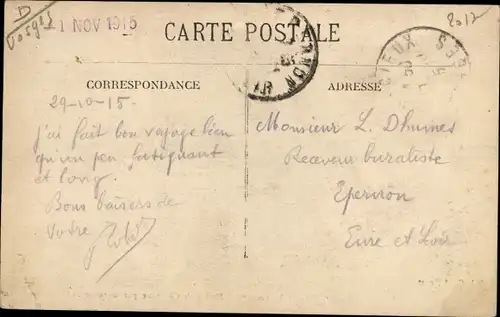 D
Vosges
1 NOV 1915
CARTE POSTALE
2012
CORRESPONDANCE
ADRESSE
29-10-15
j'ai fait bon voyage bien
qu'un peu fatiguant
et long.
Bons baisers de
Votre
Monsieur L. Dhumes
Receveur buraliste
Epernon
Eure et Loir